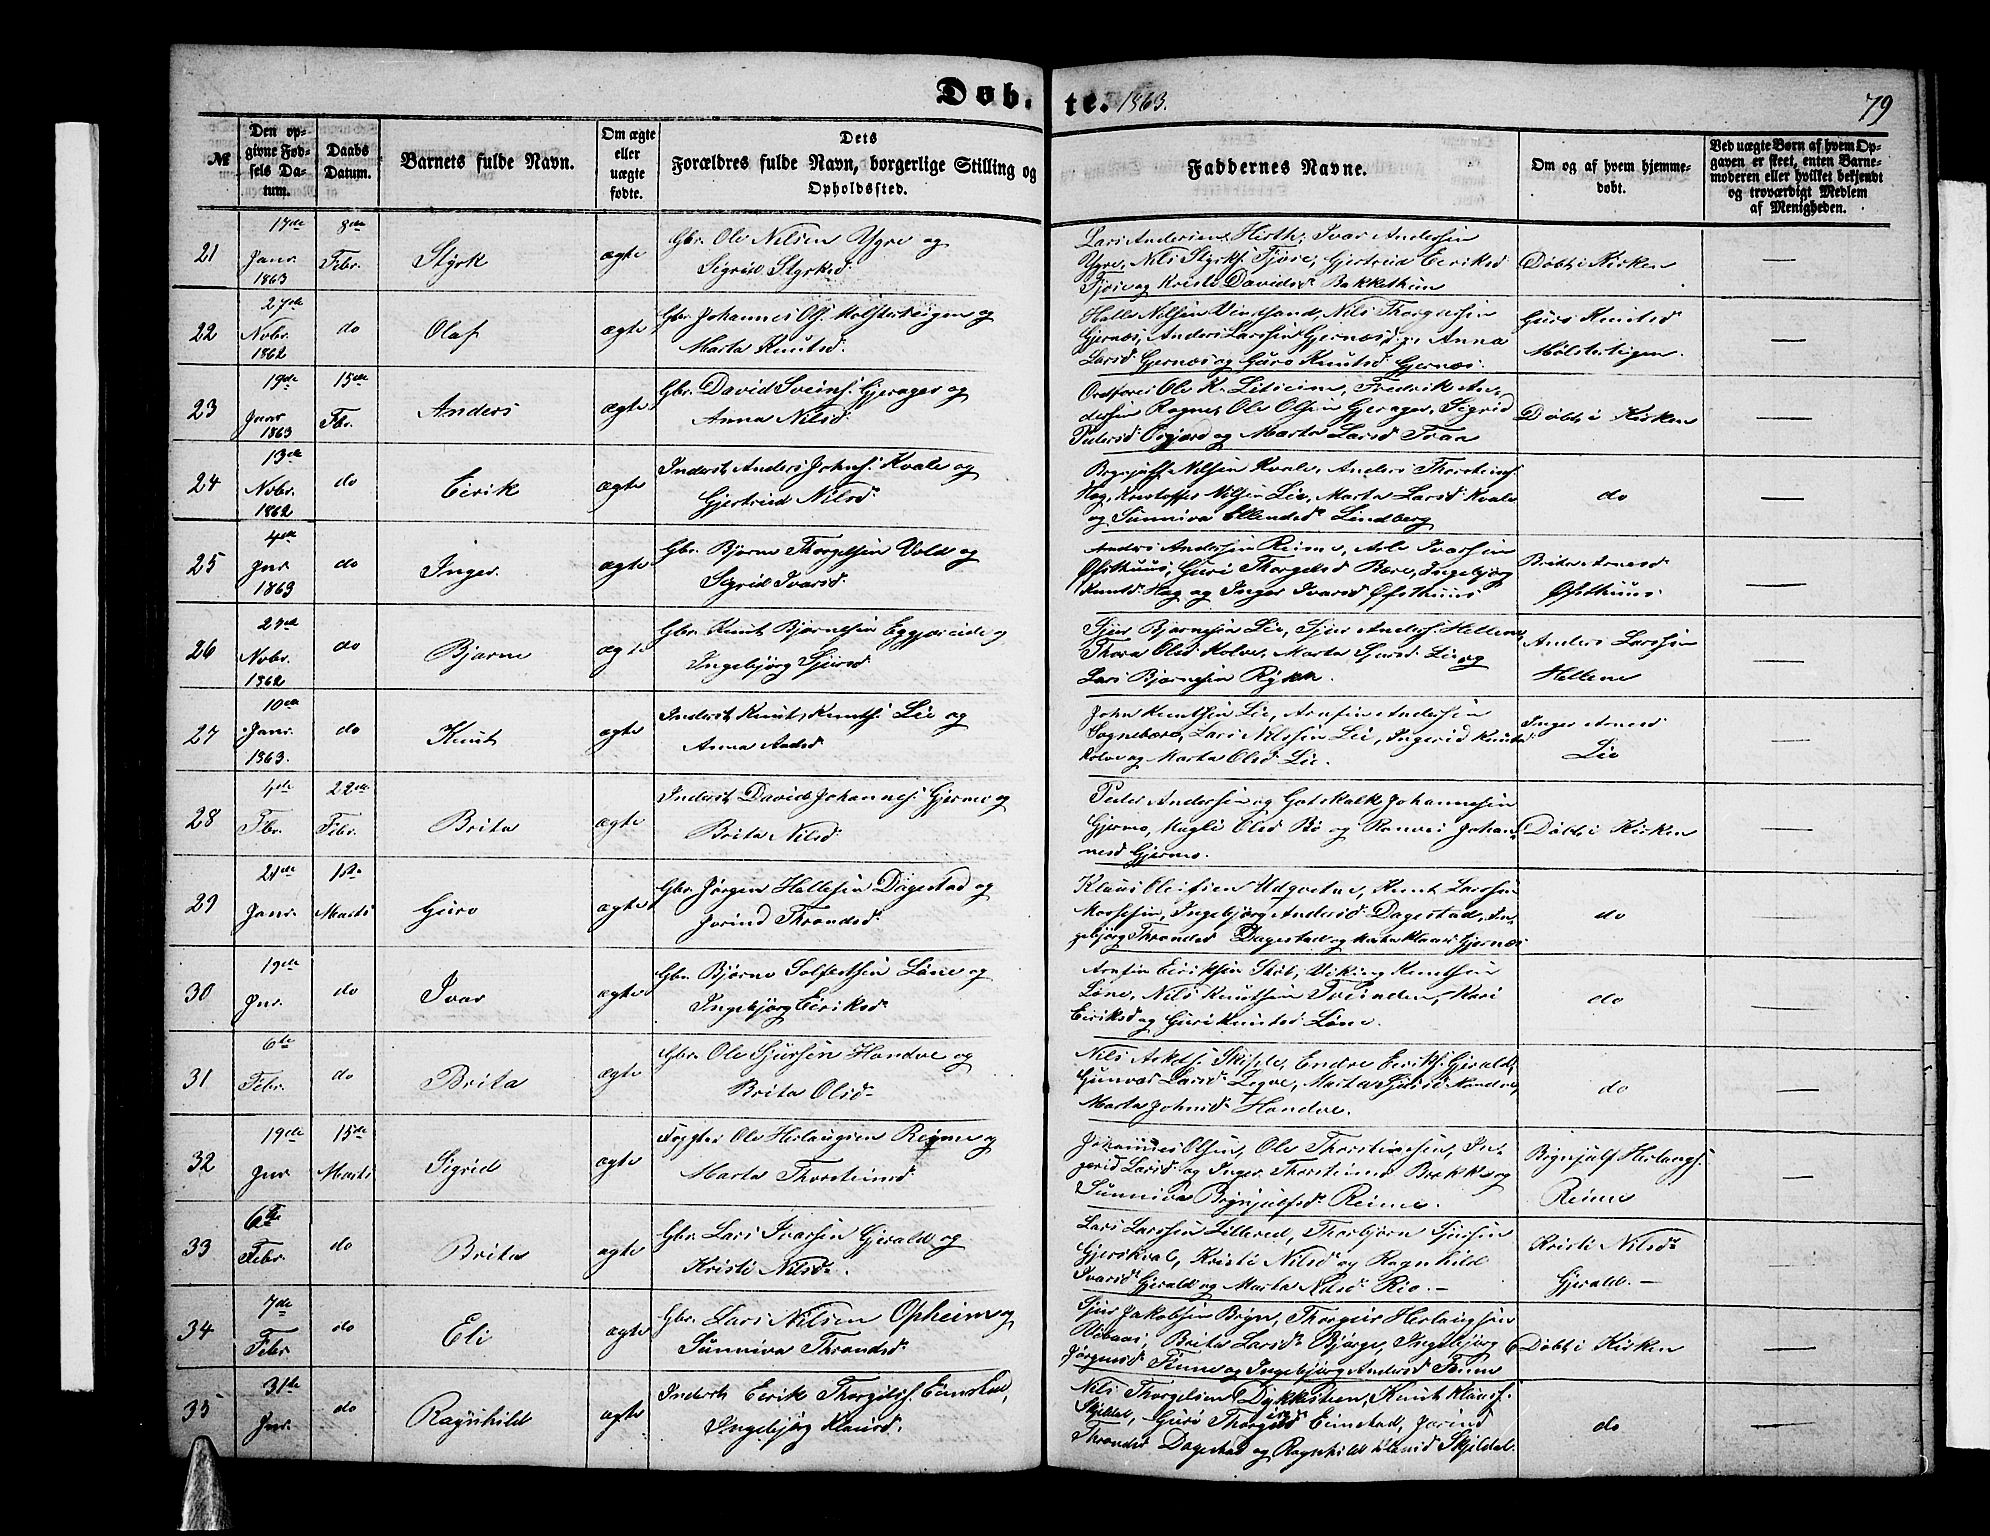 Døb. te. 1863. 79
№
Den opgivne Fødsels Datum.
Daabs Datum.
Barnets fulde Navn.
Om ægte eller uægte fødte.
Dets Forældres fulde Navn, borgerlige Stilling og Opholdssted.
Faddernes Navne.
Om og af hvem hjemmedøbt.
Ved uægte Børn af hvem Opgaven er skeet, enten Barnemoderen eller hvilket bekjendt og troværdigt Medlem af Menigheden.
21 17de Janr. 1863 8de Febr. Styrk ægte Gbr. Ole Nilsen Ygre og
Sigrid Styrksd.
Lars Andersen Hirth, Ivar Andersen
Ygre, Nils Styrks. Fjøse, Gjertrud Eeriksd
Fjøse og Kristi Davidsd. Bakkethun
Døbt i Kirken
22 27de Nobr. 1862 do Olaf ægte Gbr. Johannes Ols. Molstersteigen og
Marta Knutsd.
Halle Nilsen Vindsand, Nils Thorgersen
Gjernæs, Anders Larssen Gjernæs, Anna
Larsd. Gjernæs og Guro Knutsd. Gjernæs.
Guro Knutsd
Mølstertegen.
23 19de Janr 1863 15de Fbr. Anders ægte Gbr. David Sveins. Gjerager og
Anna Nilsd
Ordfører Ole K. Litseim, Fredrik An-
dersen Rogne, Ole Olsen Gjerager, Sigrid
Pedersd. og Marta Larsd. Traa
Døbt i Kirken
24 13de Nobr. 1862 do Eirik ægte Inderst Anders Johns. Kvale og
Gjertrud Nilsd.
Brynjulf Nilsen Kvale, Anders Thorsteins.
Hæg, Kristoffer Nilsen Lie, Marta Larsd. Kvale
og Sunniva Ellendsd. Lindberg
do
25 4de Jnr. 1863 do Inger. ægte Gbr. Bjørne Thorgelsen Vold og
Sigrid Ivarsd.
Anders Andersen Reime, Arle Ivarsen
Øfsthuus, Guri Thorgelsd. Bære, Ingebjørg
Knutsd. Hæg og Inger Ivarsd Øfsthuus
Brita Arnesd
Øfsthuus
26 27de Nobr. 1862 do Bjørne ægte Gbr. Knut Bjørnesen Eggjareide og
Ingebjørg Sjursd
Sjur Bjørnesen Lie, Sjur Anders. Hellene,
Thora Olsd. Kolve, Marta Sjursd. Lie og
Lars Bjørnesen Rykk.
Anders Larssen
Hellene
27 10de Janr. 1863. do Knut ægte Inderst Knut Knuts. Lie og
Anna Andsd.
John Knutsen Lie, Arnfin Andersen
Sognebære, Lars Nilssen Lie, Ingerid Knutsd
Kolve og Marta Olsd. Lie.
Inger Arnesd
Lie
28 4de Fbr. 22de Febr. Brita ægte Inderst David Johannes. Gjerme og
Brita Nilsd
Peder Andersen og Gotskalk Johannesen
Gjerme, Magli Olsd. Bø og Ranvei Johan-
nesd Gjerme.
Døbt i Kirken
29 21de Janr. 1ste Marts Guro ægte Gbr. Jørgen Hallesen Dagestad og
Jorind Throndsd.
Klaus Olsen Udgvetne, Knut Larssen
, Ingebjørg Andersd. Dagestad, In-
gebjørg Throndsd. Dagestad og Klausd Gjernæs
do
30 19de Jnr. do Ivar ægte Gbr. Bjørne Solfestsen Løne og
Ingebjørg Eeriksd.
Arnfin Eeriksen Støl, Viking Knutsen
Løne, Nils Knutsen Treinden, Kari
Eeriksd og Guri Knutsd. Løne.
do
31 6te Febr. do Brita ægte Gbr. Ole Sjursen Handve og
Brita Olsd.
Nils Askds. Skiple, Endre Eeriks. Gjerald,
Gunvor Larsd. Tegve, Marta Sjursd Handve,
Marta Johnsd. Handve.
do
32 19de Jnr 15de Marts Sigrid ægte Ole Herlaugsen Reime og
Marta Thorsteinsd
Johannes Olsen, Ole Thorsteinsen, In-
gerid Larsd. og Inger Thorsteinsd Bakke og
Sunniva Brynjulfsd. Reime.
Brynjulf Herlaugs.
Reime
33 6te Febr do Brita ægte Gbr. Lars Ivarsen Gjerald og
Kristi Nilsd.
Lars Larssen Lillered, Thorbjørn Sjursen
Gjerskvale, Kristi Nilsd og Ragnhild
Ivarsd. Gjerald og Marta Nilsd. Rio.—
Kristi Nilsd.
Gjerald.—
34 7de Febr do Eli ægte Gbr. Lars Nilsen Opheim og
Sunniva Throndsd.
Sjur Jakobsen Bryn, Thorger Herlaugsen
, Brita Larsd. Bjørge, Ingebjørg
Jørgensd. Finne og Ingebjørg Andersd Finne
Døbt i Kirken
35 31te Jnr. do Ragnhild ægte Inderst Eerik Thorgils. Eimstad,
Ingebjørg Klausd.
Nils Thorgelsen Dykkesteen, Knut Klaus.
Skjeldal, Guri Thorgilsd Eimstad, Jorind
Throndsd. Dagestad og Ragnhild Klausd Skjeldal.
do